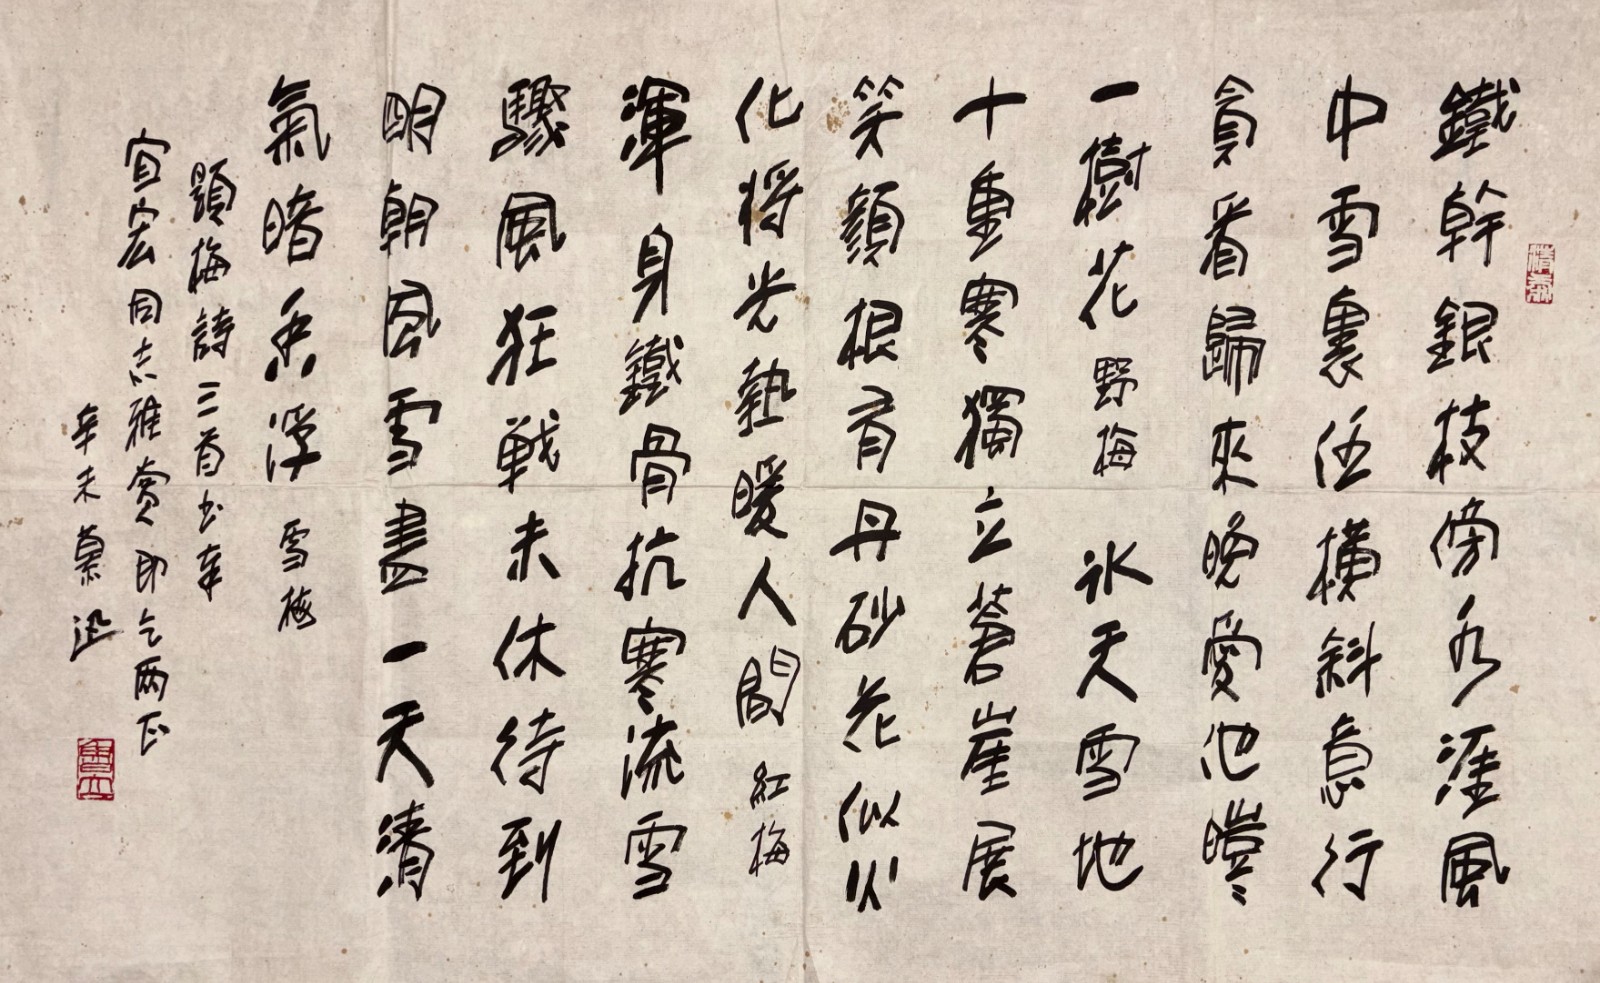 鐵幹銀枝傍水涯風
中雪裏任橫斜息行
貪看歸來晚愛他皚
一樹花 野梅 冰天雪地
十重寒獨立蒼崖展
笑顏根育丹砂花似火
化將光熱暖人間 紅梅
渾身鐵骨抗寒流雪
驟風狂戰未休待到
明朝風雪盡一天清
氣暗香浮 雪梅
題梅詩三首書奉
宜宏同志雅賞即乞两正
辛未 迅